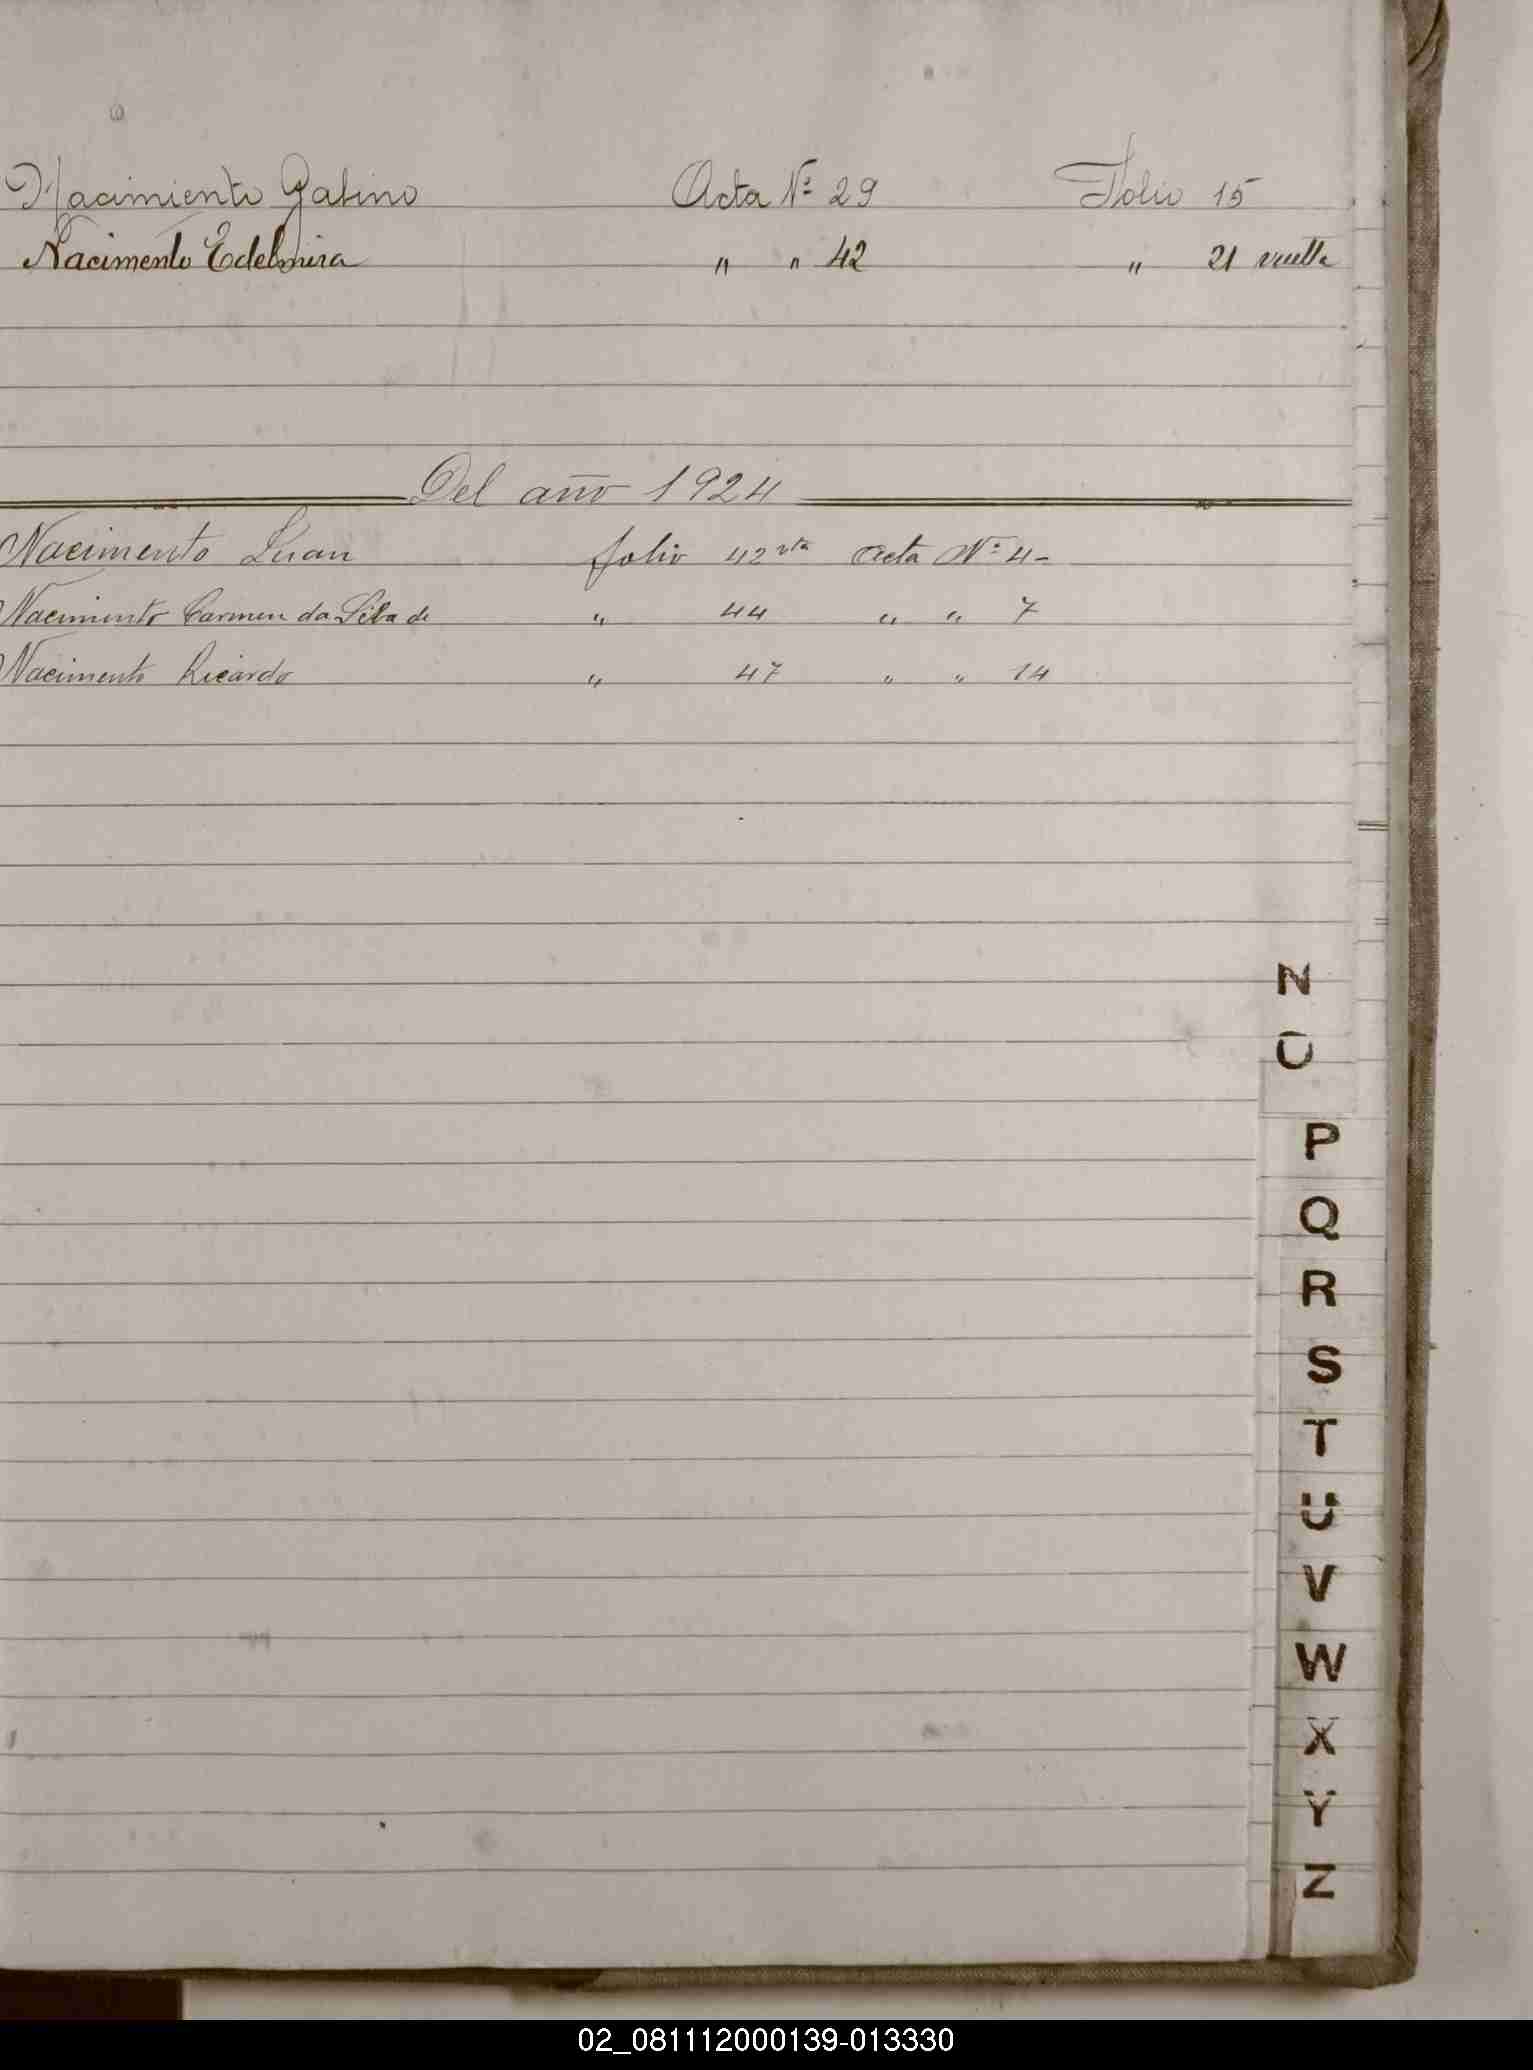 Nacimiento Gabino Acta Nº 29 Folio 15
Nacimento Edelmira " " 42 " 21 vuelta
Del año 1924
Nacimento Juan folio 42 vta acta Nº 4-
Nacimento Carmen da Silva de " 44 " " 7
Nacimento Ricardo " 47 " " 14
N
O
P
Q
R
S
T
U
V
W
X
Y
Z
02_081112000139-013330